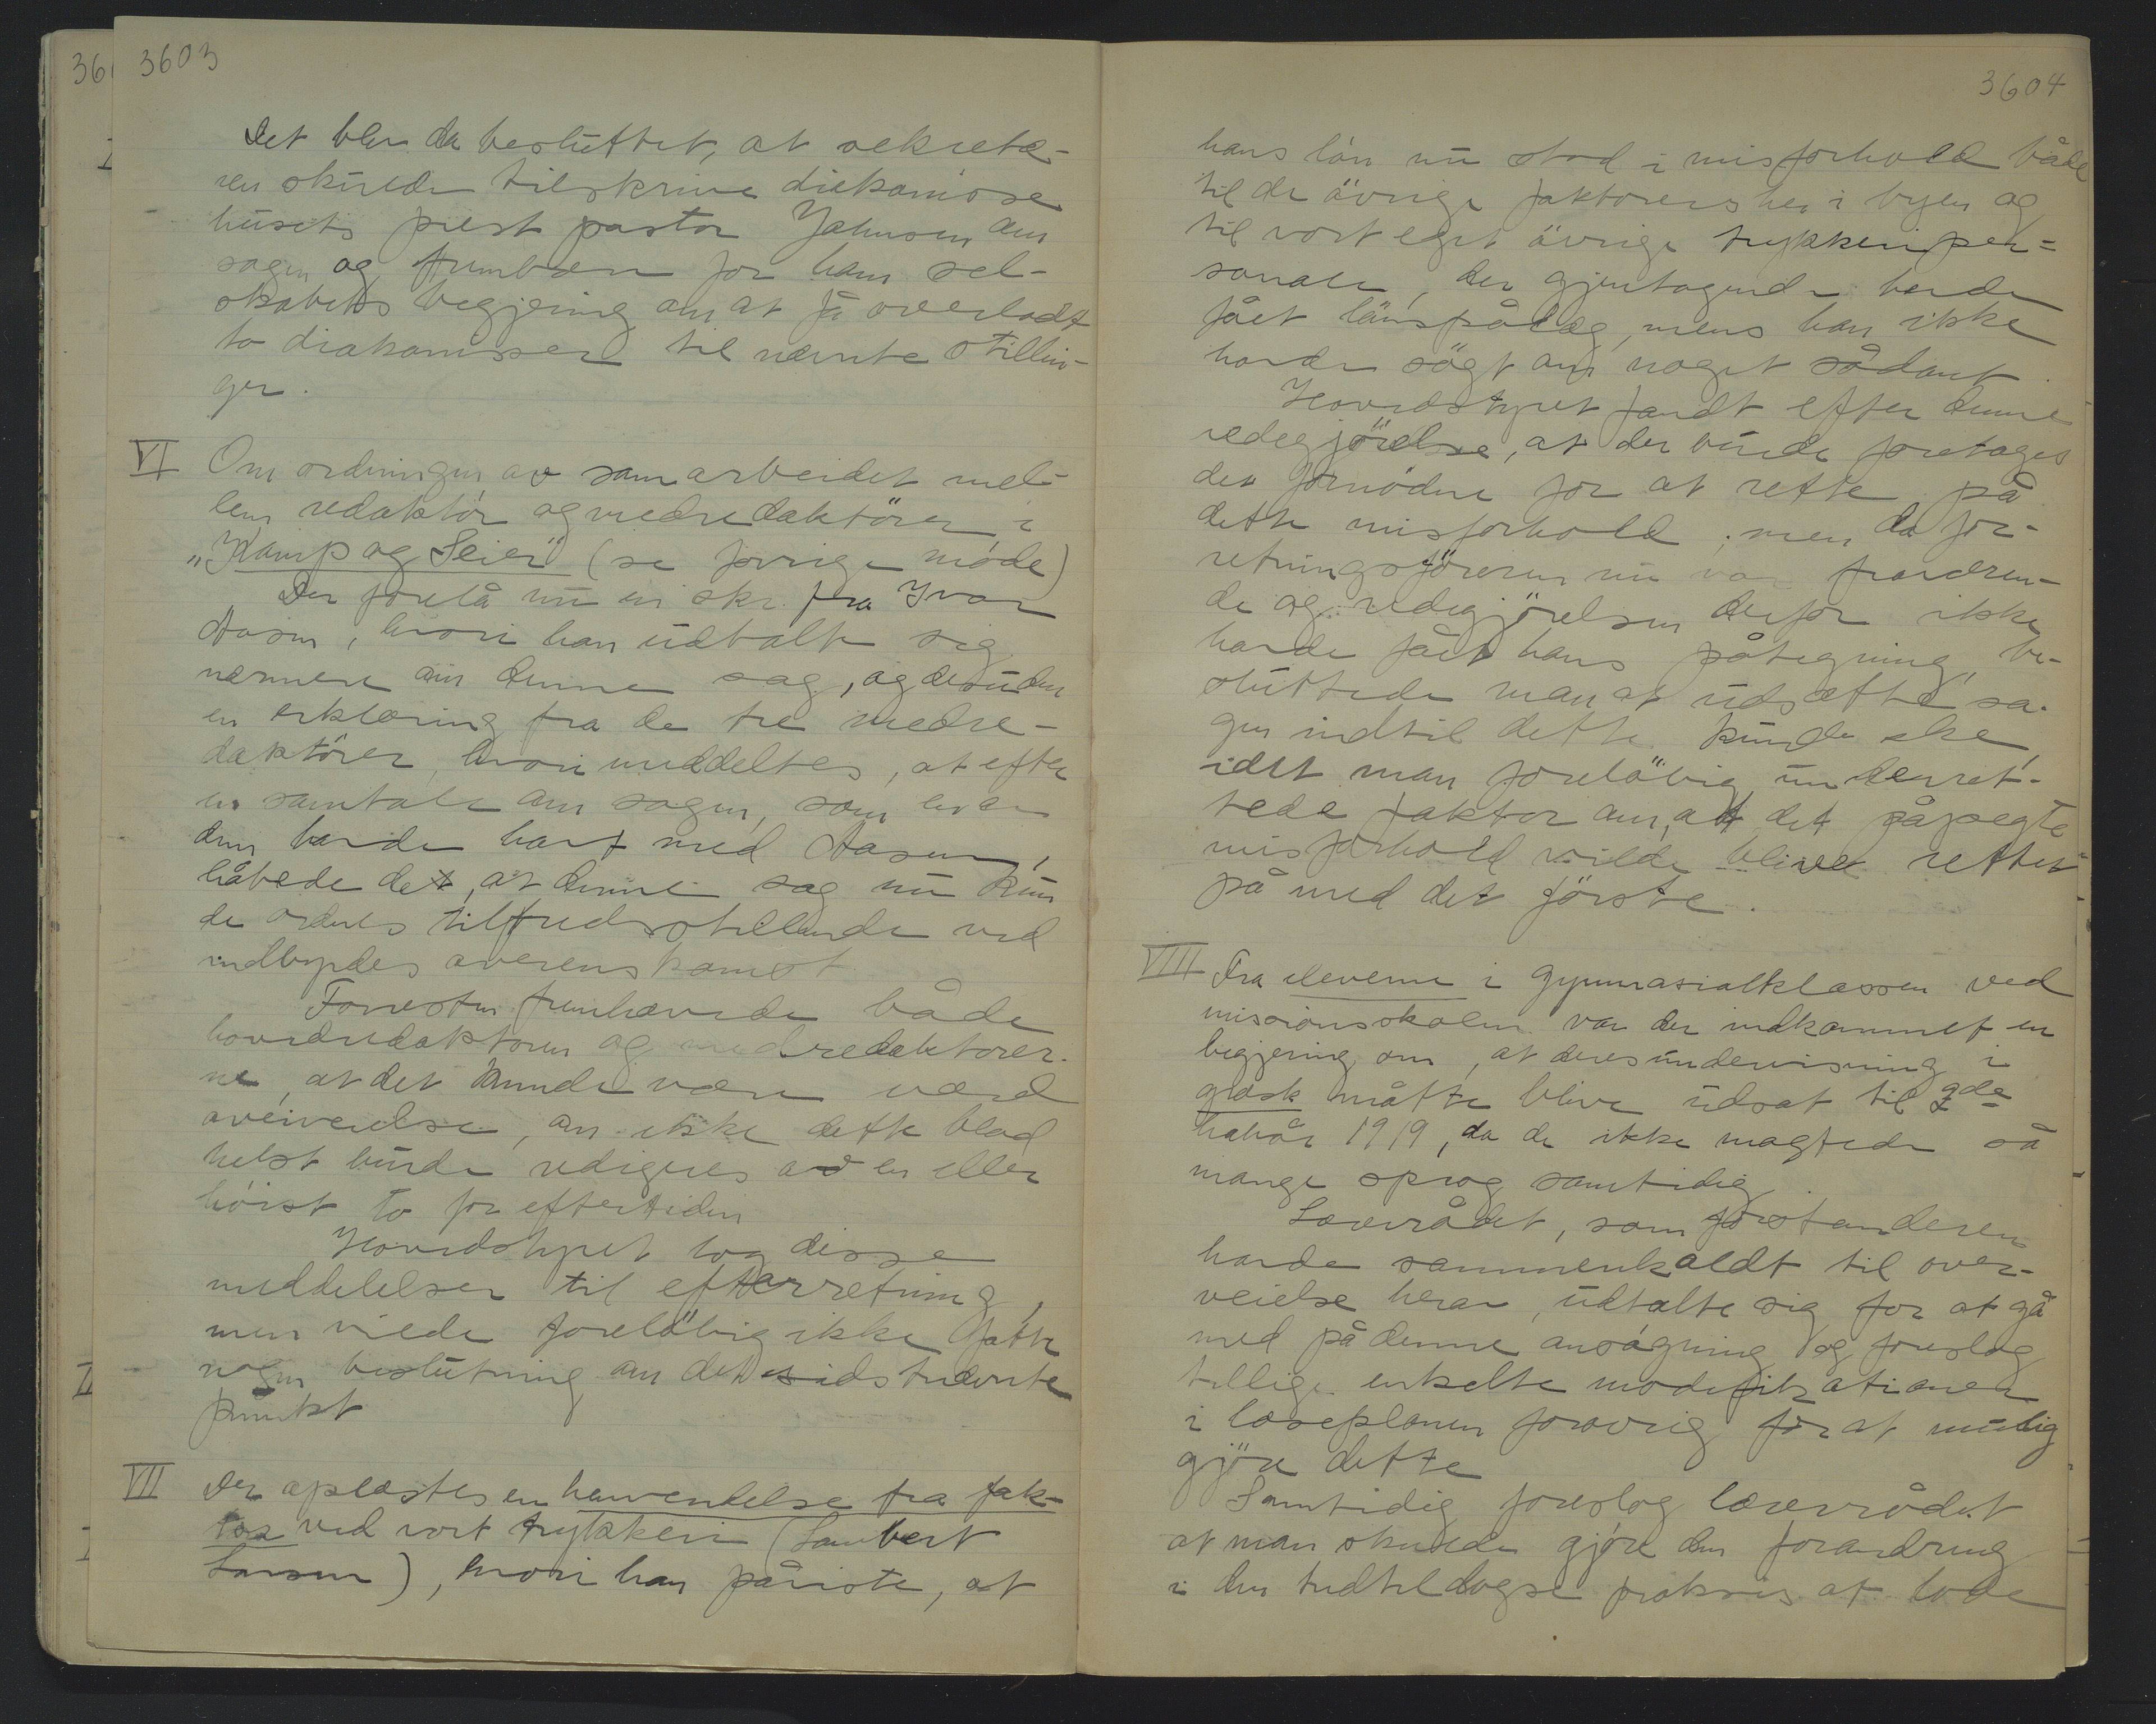 3603
Det blev da besluttet, at sekretæ-
ren skulde tilskrive diakonisse
husets prest pastor Johnson om
sagen og frembære for ham sel-
skabets begjering om at få overladt
to diakonisser til nævnte stillin-
ger.
VI Om ordningen av samarbeidet mel-
lem redaktör og medredaktörer i
„Kamp og Seier" (se forrige møde)
Der forelå nu en skr. fra Ivar
Aasen, hvori han udtalte sig
nærmere om denne sag, og desuden
en erklæring fra de tre medre-
daktörer, hvori meddeltes, at efter
en samtale om sagen, som
de havde havt med Aasen,
håbede de, at denne sag nu kun
de ordnes tilfredsstillende ved
indbyrdes overenskomst
Forresten fremhævede både
hovedredaktøren og medredaktører-
ne, at det kunde være værd
overveielse, om ikke dette blad
helst burde redigeres av en eller
höist to for eftertiden
Hovedstyret tog disse
meddelelser til efterretning,
men vilde foreløbig ikke fatte
nogen beslutning om det sidstnævnte
punkt
VII Der oplæstes en henvendelse fra fak-
tor ved vort trykkeri (Lambert
Larsen), hvori han påviste, at
3604
hans lön nu stod i misforhold både
til de övrige faktorers her i byen og
til vort eget övrige trykkeriper-
sonale, der gjentagende havde
fået lönspålæg, mens han ikke
havde sögt om noget sådant.
Hovedstyret fandt efter denne
redegjörelse, at der burde foretages
det fornödne for at rette på
dette misforhold; men da for-
retningsföreren nu var fraværen-
de og redegjörelsen derfor ikke
havde fået hans påtegning, be-
sluttede man at udsætte sa-
gen indtil dette kunde ske,
idet man foreløbig underret-
tede faktor om, at det påpegte
misforhold vilde blive rettet
på med det förste.
VIII Fra eleverne i gymnasialklassen ved
missionsskolen var der indkommet en
begjering om, at deres undervisning i
græsk måtte blive udsat til 2de
halvår 1919, da de ikke magtede så
mange sprog samtidig.
Lærerrådet, som forstanderen
havde sammenkaldt til over-
veielse herav, udtalte sig for at gå
med på denne ansøgning og foreslog
tillige enkelte modifikationer
i læseplanen forøvrig for at mulig
gjöre dette
Samtidig foreslog lærerrådet
at man skulde gjöre den forandring
i den hidtil dagse praksis at lade